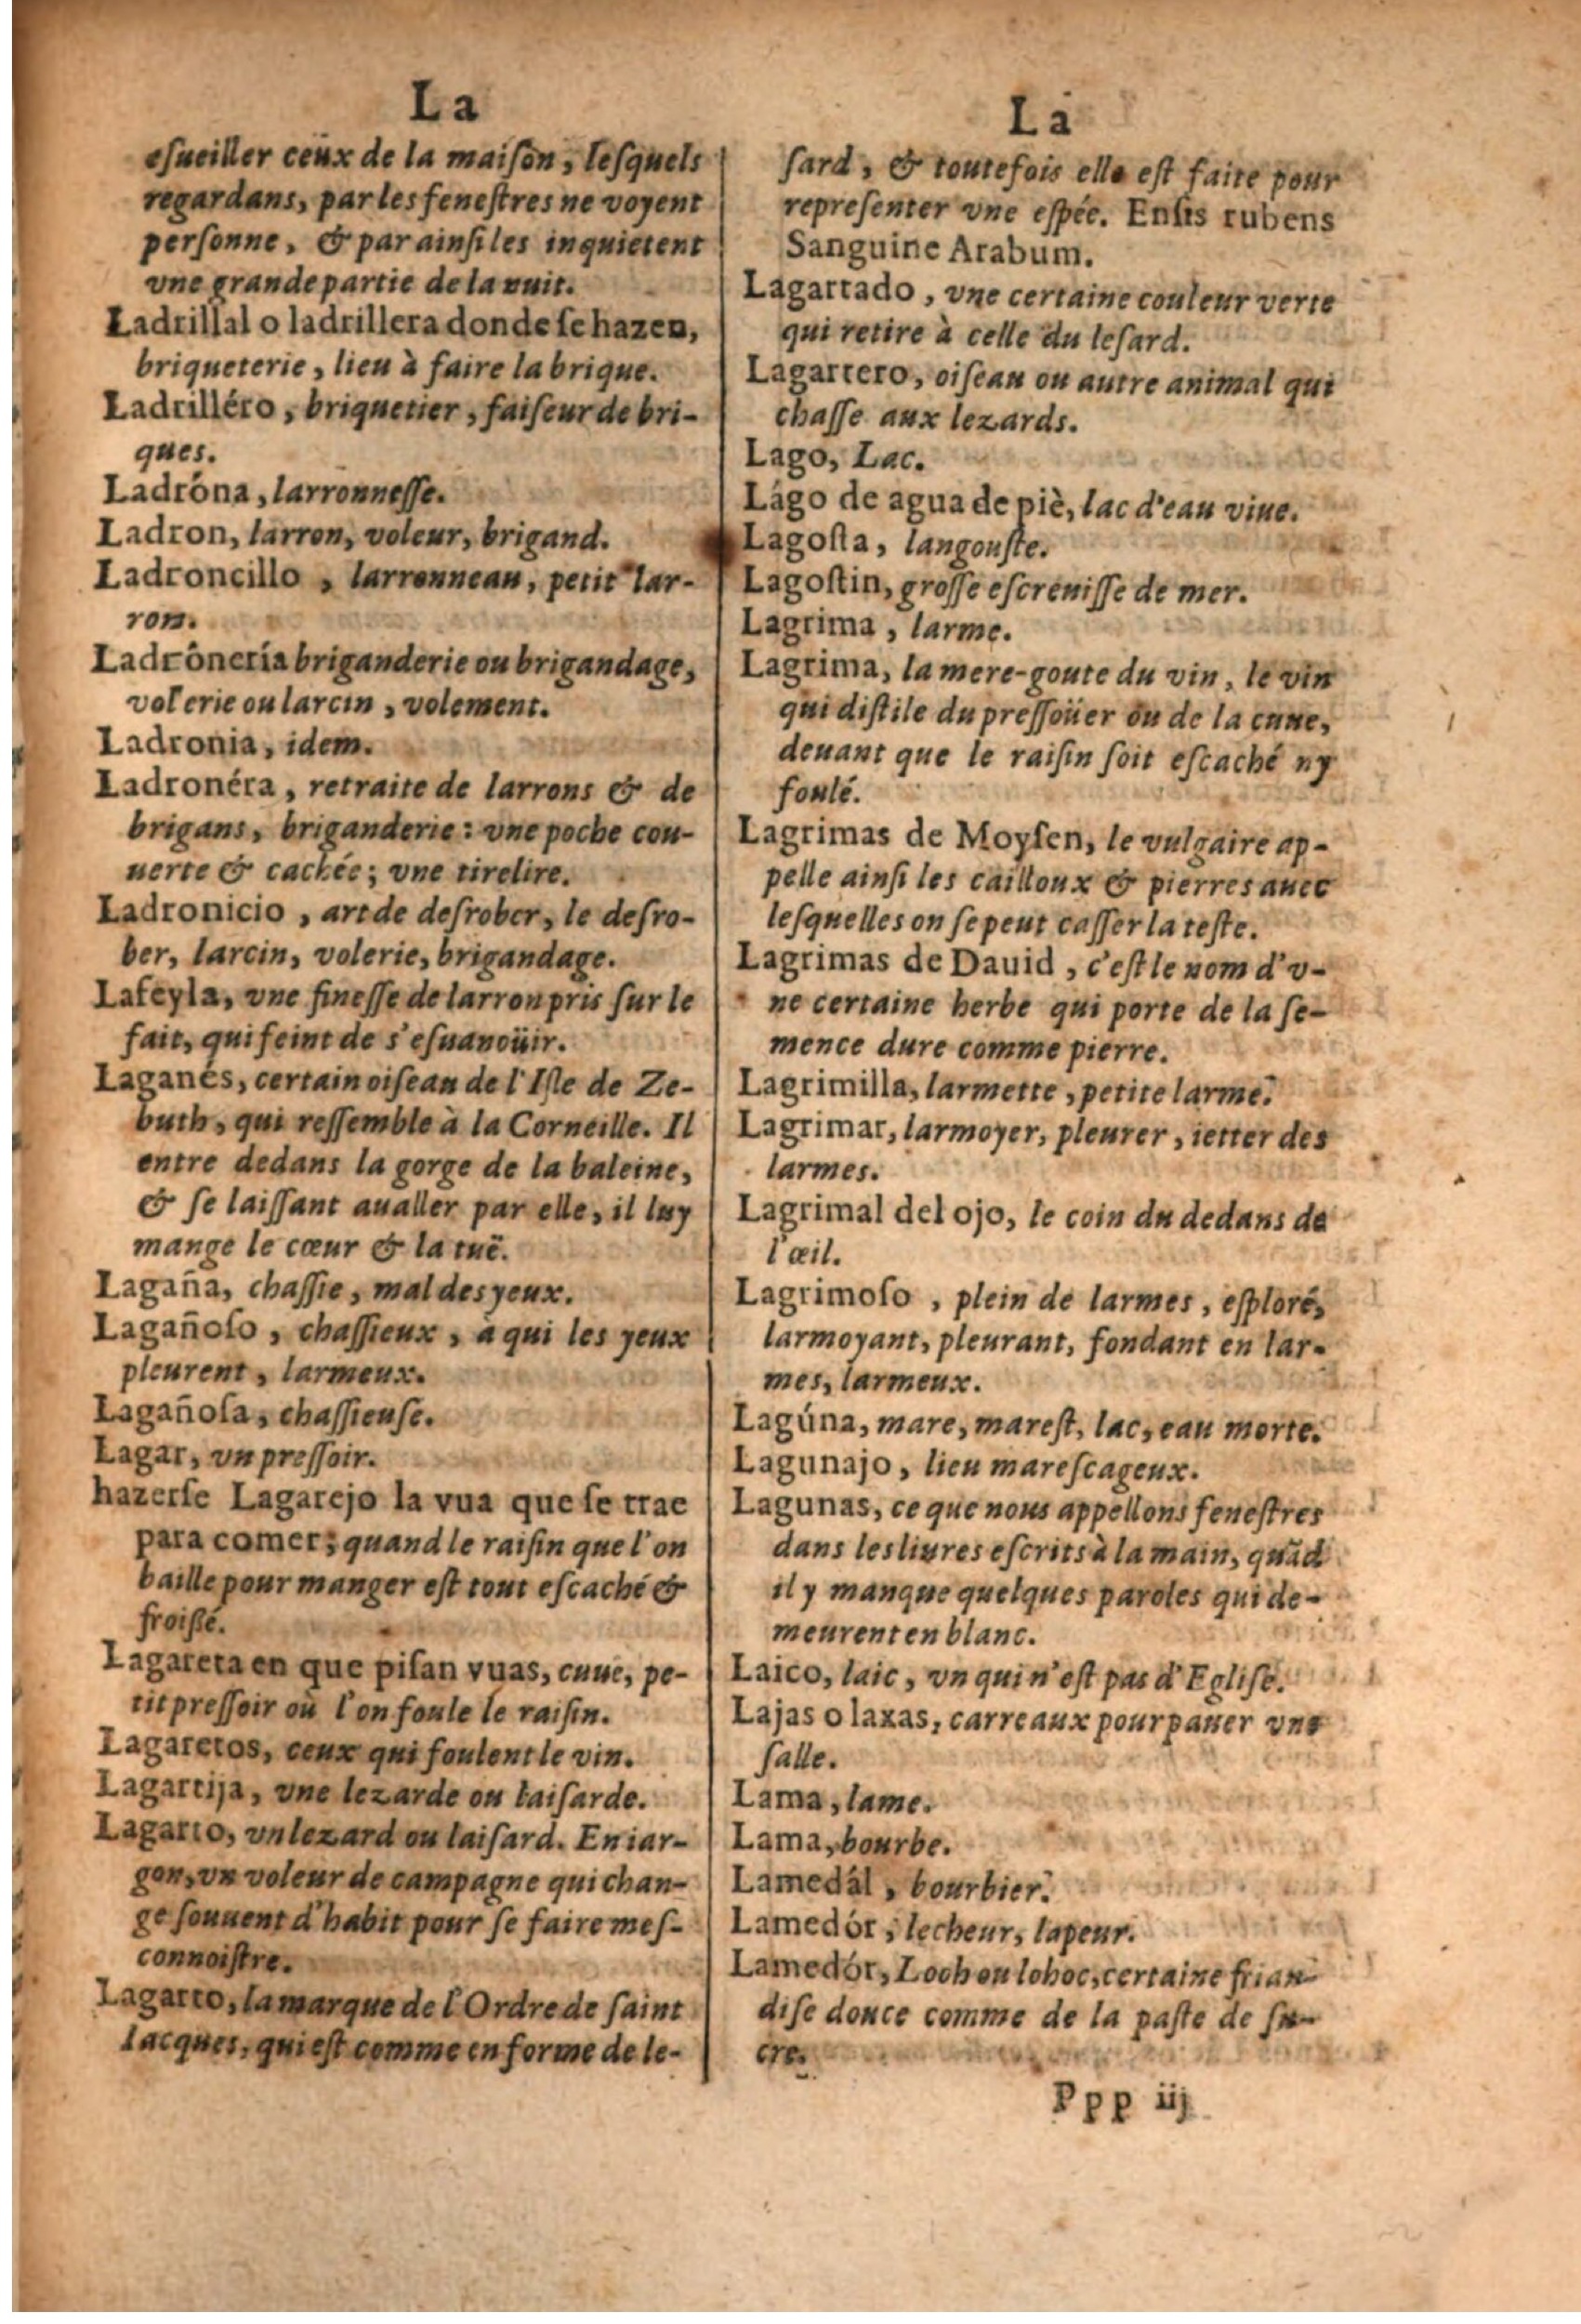 La
eſueiller ceux de la maiſon, leſquels
regardans, par les feneſtres ne voyent
perſonne, & par ainſi les inquietent
vne grande partie de la nuit.
Ladrillal o ladrillera donde ſe hazen,
briqueterie, lieu à faire la brique.
Ladrilléro, briquetier, faiſeur de bri-
ques.
Ladróna, larronneſſe.
Ladron, larron, voleur, brigand.
Ladroncillo, larronneau, petit lar-
ron.
Ladrônería briganderie ou brigandage,
volerie ou larcin, volement.
Ladronia, idem.
Ladronéra, retraite de larrons & de
brigans, briganderie: vne poche cou-
uerte & cachée; vne tirelire.
Ladronicio, art de deſrober, le deſro-
ber, larcin, volerie, brigandage.
Lafeyla, vne fineſſe de larron pris ſur le
fait, qui feint de s'eſuanoüir.
Laganés, certain oiſeau de l'Iſle de Ze-
buth, qui reſſemble à la Corneille. Il
entre dedans la gorge de la baleine,
& ſe laiſſant aualler par elle, il luy
mange le cœur & la tuë.
Lagaña, chaſſie, mal des yeux.
Lagañoſo, chaſſieux, à qui les yeux
pleurent, larmeux.
Lagañoſa, chaſſieuſe.
Lagar, vn preſſoir.
hazerſe Lagarejo la vua que ſe trae
para comer; quand le raiſin que l'on
baille pour manger eſt tout eſcaché &
froißé.
Lagareta en que piſan vuas, cuue, pe-
tit preſſoir où l'on foule le raiſin.
Lagaretos, ceux qui foulent le vin.
Lagartija, vne lezarde ou laiſarde.
Lagarto, vn lezard ou laiſard. En iar-
gon, vn voleur de campagne qui chan-
ge ſouuent d'habit pour ſe faire meſ-
connoiſtre.
Lagarto, la marque de l'Ordre de ſaint
Iacques, qui eſt comme en forme de le-
La
ſard, & toutefois elle eſt faite pour
repreſenter vne eſpée. Enſis rubens
Sanguine Arabum.
Lagartado, vne certaine couleur verte
qui retire à celle du leſard.
Lagartero, oiſeau ou autre animal qui
chaſſe aux lezards.
Lago, Lac.
Lágo de agua de piè, lac d'eau viue.
Lagoſta, langouſte.
Lagoſtin, groſſe eſcreuiſſe de mer.
Lagrima, larme.
Lagrima, la mere-goute du vin, le vin
qui diſtile du preſſoüer ou de la cuue,
deuant que le raiſin ſoit eſcaché ny
foulé.
Lagrimas de Moyſen, le vulgaire ap-
pelle ainſi les cailloux & pierres auec
leſquelles on ſe peut caſſer la teſte.
Lagrimas de Dauid, c'eſt le nom d'v-
ne certaine herbe qui porte de la ſe-
mence dure comme pierre.
Lagrimilla, larmette, petite larme.
Lagrimar, larmoyer, pleurer, ietter des
larmes.
Lagrimal del ojo, le coin du dedans de
l'œil.
Lagrimoſo, plein de larmes, eſploré,
larmoyant, pleurant, fondant en lar-
mes, larmeux.
Lagúna, mare, mareſt, lac, eau morte.
Lagunajo, lieu mareſcageux.
Lagunas, ce que nous appellons feneſtres
dans les liures eſcrits à la main, quãd
il y manque quelques paroles qui de-
meurent en blanc.
Laico, laic, vn qui n'eſt pas d'Egliſe.
Lajas o laxas, carreaux pour pauer vne
ſalle.
Lama, lame.
Lama, bourbe.
Lamedál, bourbier.
Lamedór, lecheur, lapeur.
Lamedór, Looh ou lohoc, certaine frian-
diſe douce comme de la paſte de ſu-
cre.
Ppp iij